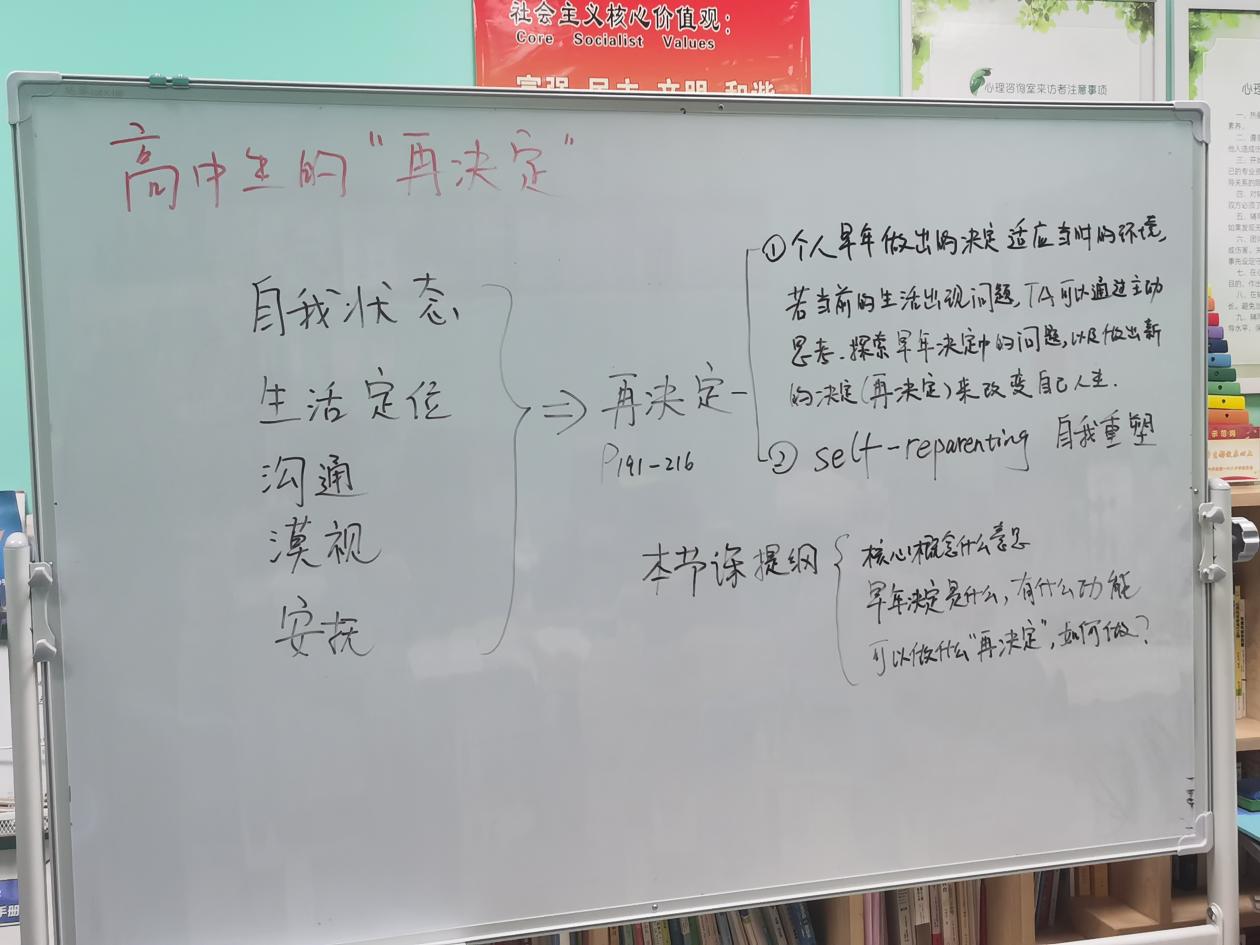 社会主义核心价值观：
Core Socialist Values
富强 民主 文明 和谐
心理咨询室来访者注意事项
高中生的“再决定”
自我状态
生活定位
沟通
漠视
安抚
⇒ 再决定
P191-216
①个人早年做出的决定适应当时的环境,
若当前的生活出现问题,TA可以通过主动
思考、探索早年决定中的问题,以及做出新
的决定(再决定)来改变自己人生.
② self-reparenting 自我重塑
本节课提纲
核心概念什么意思
早年决定是什么,有什么功能
可以做什么“再决定”,如何做?
手册